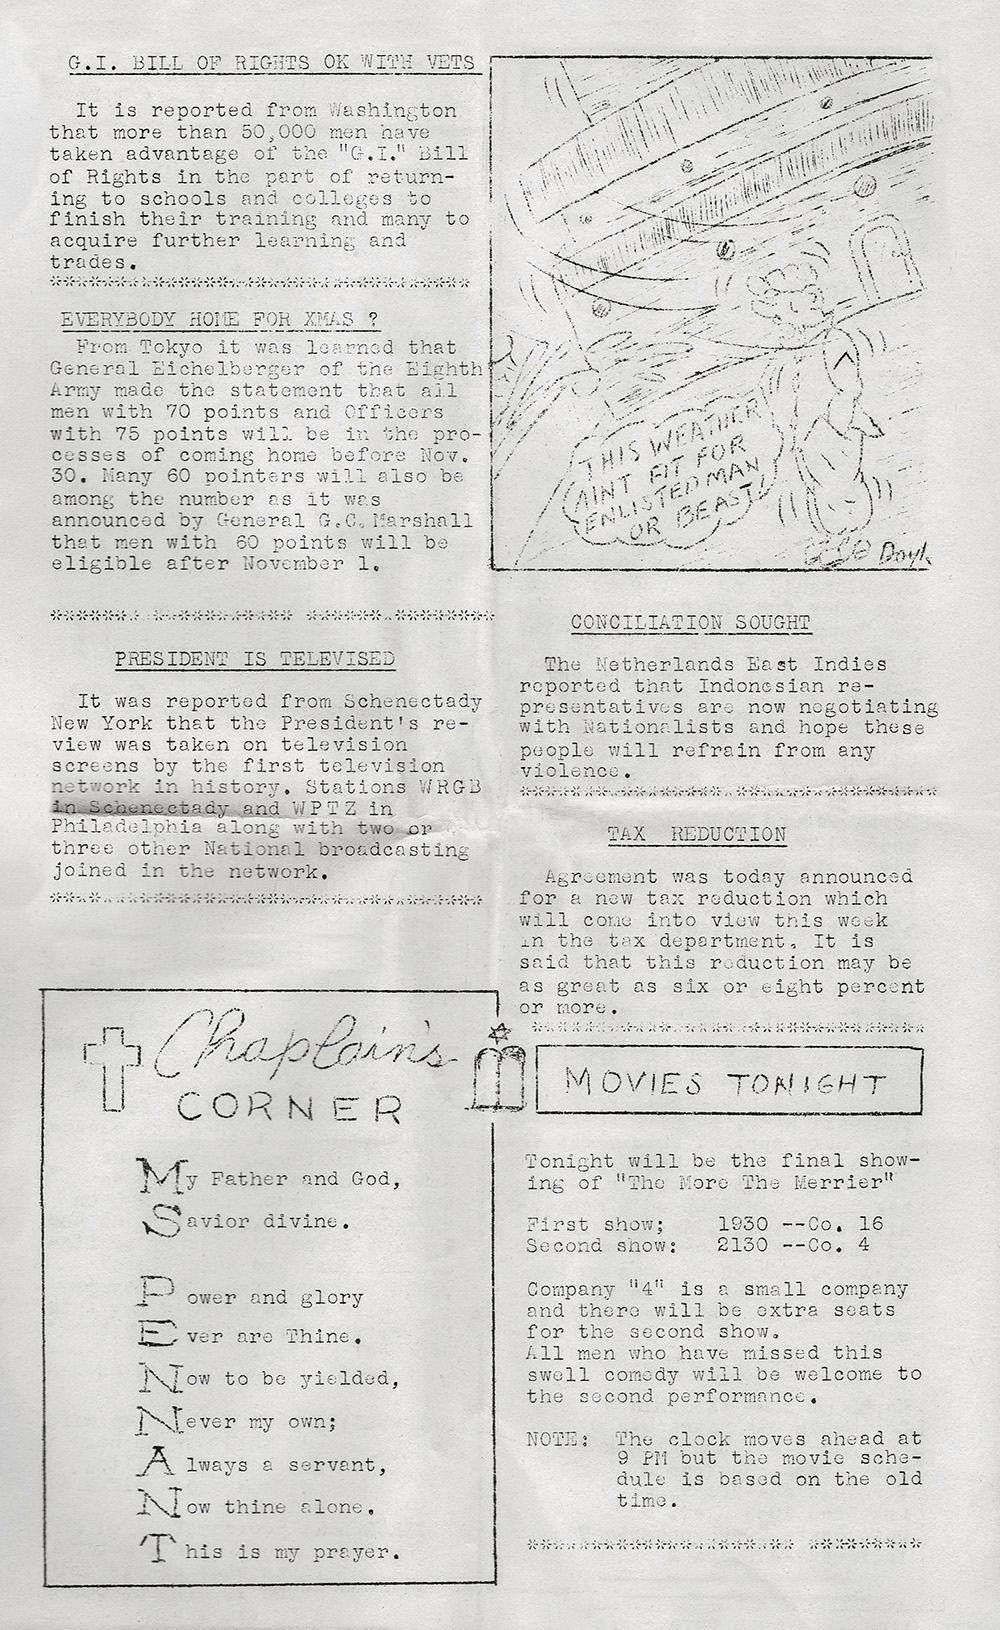 G.I. BILL OF RIGHTS OK WITH VETS
It is reported from Washington
that more than 50,000 men have
taken advantage of the "G.I." Bill
of Rights in the part of return-
ing to schools and colleges to
finish their training and many to
acquire further learning and
trades.
EVERYBODY HOME FOR XMAS ?
From Tokyo it was learned that
General Eichelberger of the Eighth
Army made the statement that all
men with 70 points and Officers
with 75 points will be in the pro-
cesses of coming home before Nov.
30. Many 60 pointers will also be
among the number as it was
announced by General G.C. Marshall
that men with 60 points will be
eligible after November 1.
PRESIDENT IS TELEVISED
It was reported from Schenectady
New York that the President's re-
view was taken on television
screens by the first television
network in history. Stations WRGB
in Schenectady and WPTZ in
Philadelphia along with two or
three other National broadcasting
joined in the network.
Chaplain's
CORNER
My Father and God,
Savior divine.
Power and glory
Ever are Thine.
Now to be yielded,
Never my own;
Always a servant,
Now thine alone.
This is my prayer.
THIS WEATHER
AINT FIT FOR
ENLISTED MAN
OR BEAST!
CONCILIATION SOUGHT
The Netherlands East Indies
reported that Indonesian re-
presentatives are now negotiating
with Nationalists and hope these
people will refrain from any
violence.
TAX REDUCTION
Agreement was today announced
for a new tax reduction which
will come into view this week
in the tax department. It is
said that this reduction may be
as great as six or eight percent
or more.
MOVIES TONIGHT
Tonight will be the final show-
ing of "The More The Merrier"
First show; 1930 --Co. 16
Second show: 2130 --Co. 4
Company "4" is a small company
and there will be extra seats
for the second show.
All men who have missed this
swell comedy will be welcome to
the second performance.
NOTE: The clock moves ahead at
9 PM but the movie sche-
dule is based on the old
time.